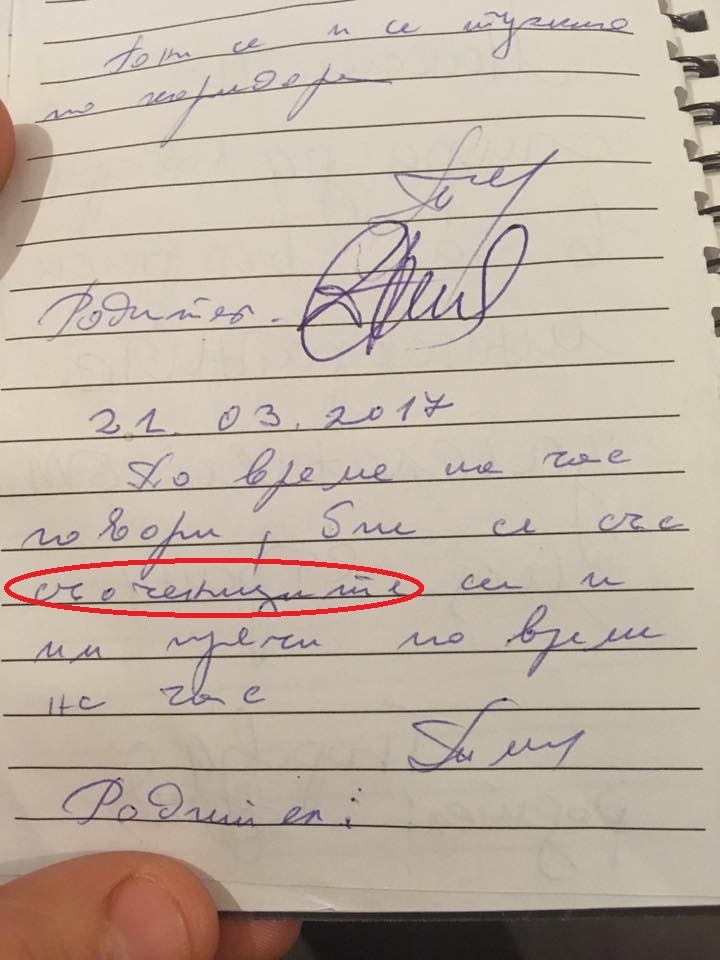 се и се
по коридора
Родител.
21. 03. 2017
По време на час
говори, бие се със
съочениците си и
им пречи по време
на час
Родител: